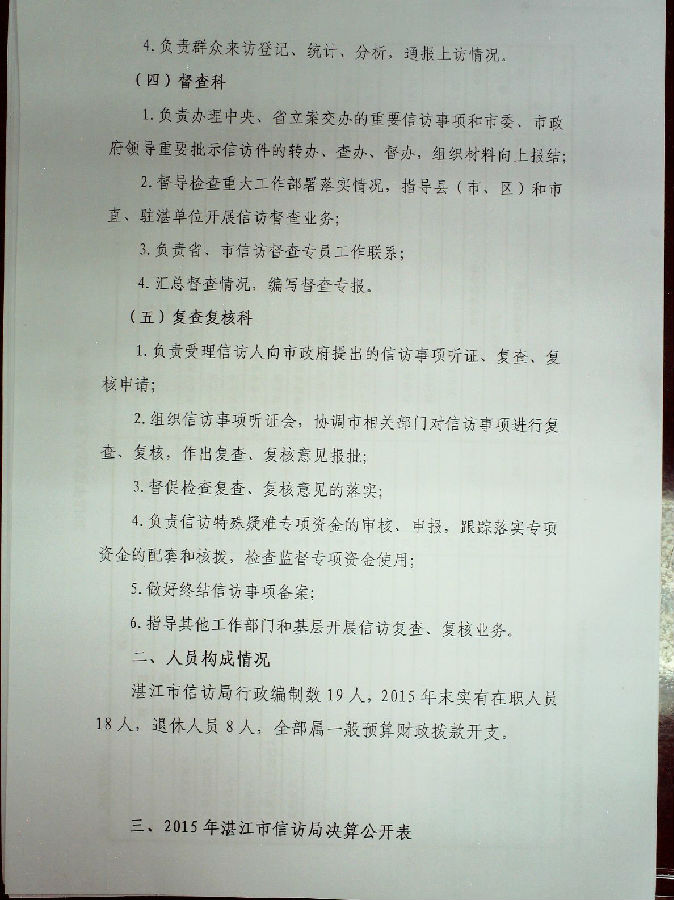 4.负责群众来访登记、统计、分析，通报上访情况。
（四）督查科
1.负责办理中央、省立案交办的重要信访事项和市委、市政
府领导重要批示信访件的转办、查办、督办，组织材料向上报结；
2.督导检查重大工作部署落实情况，指导县（市、区）和市
直、驻湛单位开展信访督查业务；
3.负责省、市信访督查专员工作联系；
4.汇总督查情况，编写督查专报。
（五）复查复核科
1.负责受理信访人向市政府提出的信访事项听证、复查、复
核申请；
2.组织信访事项听证会，协调市相关部门对信访事项进行复
查、复核，作出复查、复核意见报批；
3.督促检查复查、复核意见的落实；
4.负责信访特殊疑难专项资金的审核、申报，跟踪落实专项
资金的配套和核拨，检查监督专项资金使用；
5.做好终结信访事项备案；
6.指导其他工作部门和基层开展信访复查、复核业务。
二、人员构成情况
湛江市信访局行政编制数19人，2015年末实有在职人员
18人，退休人员8人，全部属一般预算财政拨款开支。
三、2015年湛江市信访局决算公开表